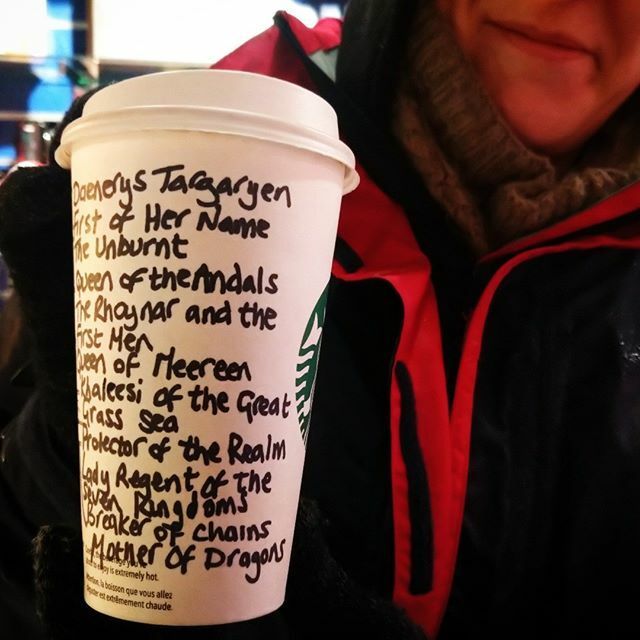 Daenerys Targaryen
First of Her Name
The Unburnt
Queen of the Andals
The Rhoynar and the
First Men
Queen of Meereen
Khaleesi of the Great
Grass Sea
Protector of the Realm
Lady Regent of the
Seven Kingdoms
Breaker of Chains
Mother of Dragons
enjoy is extremely hot.
Attention, la boisson que vous allez
déguster est extrêmement chaude.